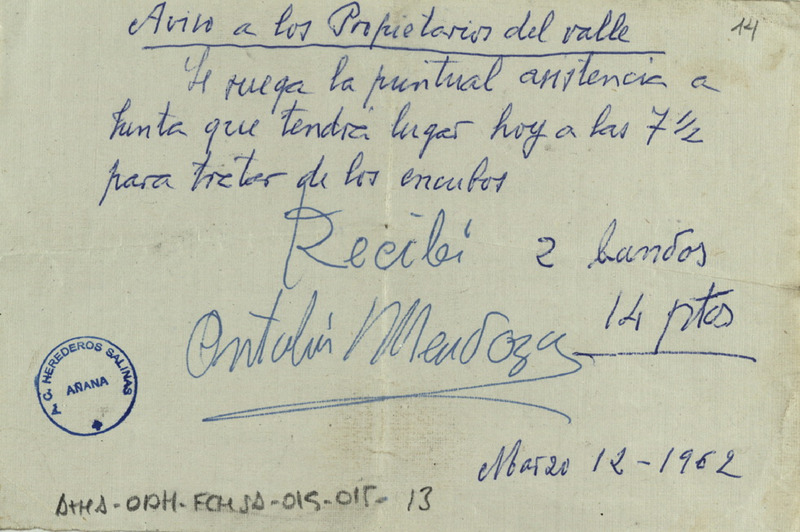 Aviso a los Propietarios del valle
14
Se ruega la puntual asistencia a
Junta que tendrá lugar hoy a las 7 1/2
para tratar de los encubos
Recibí 2 bandos
14 ptas
Antolin Mendoza
C. HEREDEROS SALINAS
AÑANA
Marzo 12-1962
ATHA-ODH-FCHSA-015-015-13